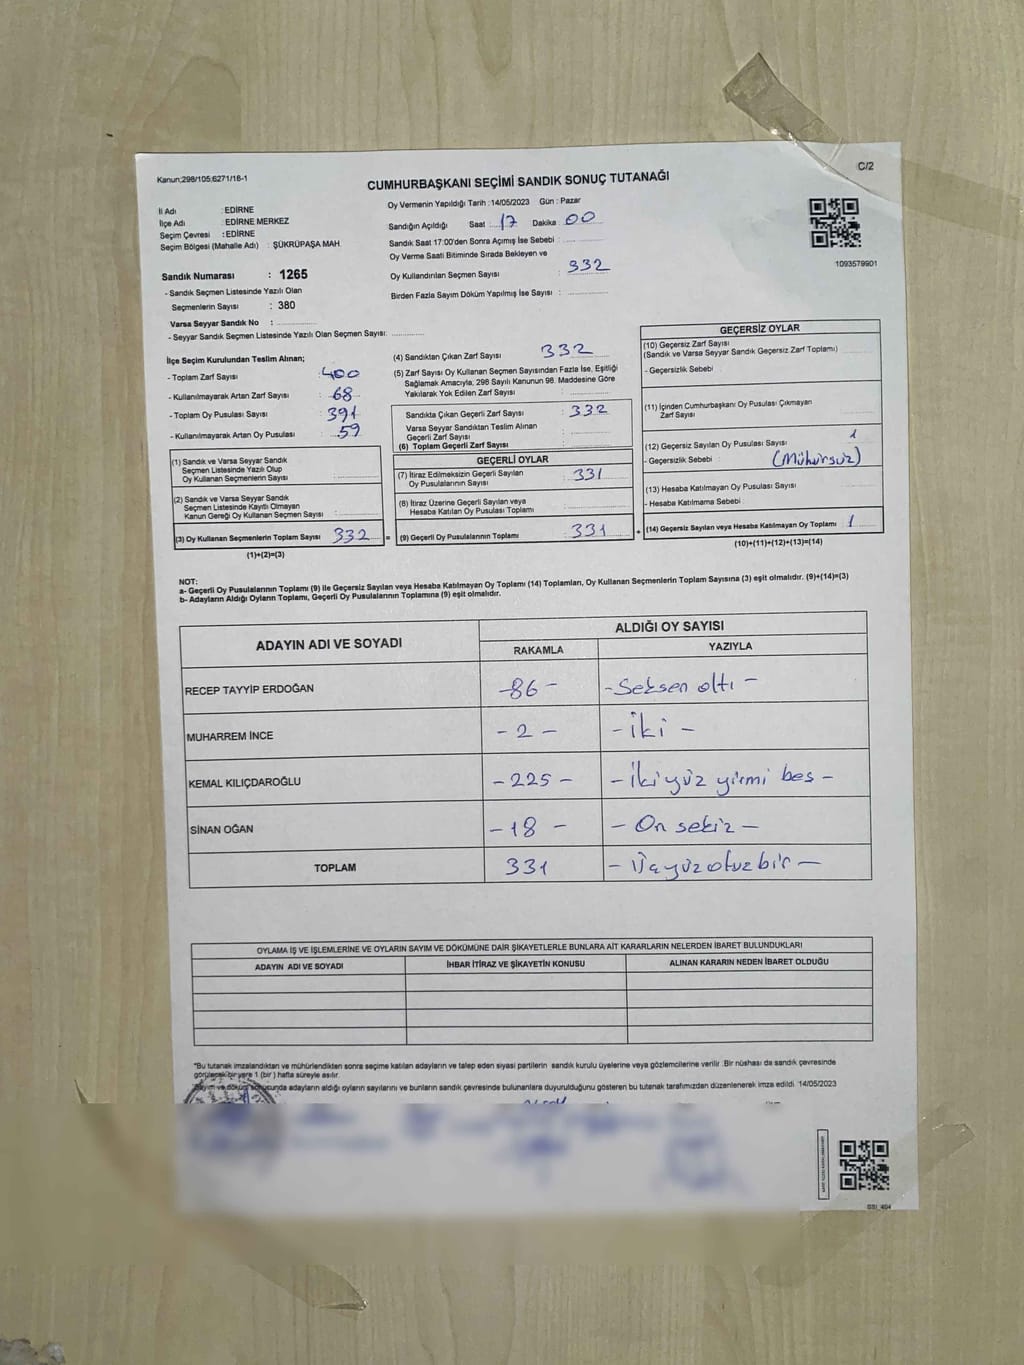 Kanun;298/105;6271/18-1
C/2
CUMHURBAŞKANI SEÇİMİ SANDIK SONUÇ TUTANAĞI
İl Adı : EDİRNE
İlçe Adı : EDİRNE MERKEZ
Seçim Çevresi : EDİRNE
Seçim Bölgesi (Mahalle Adı) : ŞÜKRÜPAŞA MAH.
Sandık Numarası : 1265
- Sandık Seçmen Listesinde Yazılı Olan
Seçmenlerin Sayısı : 380
Varsa Seyyar Sandık No :
- Seyyar Sandık Seçmen Listesinde Yazılı Olan Seçmen Sayısı:
Oy Vermenin Yapıldığı Tarih : 14/05/2023 Gün : Pazar
Sandığın Açıldığı Saat : 17 Dakika : 00
Sandık Saat 17:00'den Sonra Açımış İse Sebebi :
Oy Verme Saati Bitiminde Sırada Bekleyen ve
Oy Kullandırılan Seçmen Sayısı : 332
Birden Fazla Sayım Döküm Yapılmış İse Sayısı :
1093579901
İlçe Seçim Kurulundan Teslim Alınan;
- Toplam Zarf Sayısı : 400
- Kullanılmayarak Artan Zarf Sayısı : 68
- Toplam Oy Pusulası Sayısı : 391
- Kullanılmayarak Artan Oy Pusulası : 59
(1) Sandık ve Varsa Seyyar Sandık
Seçmen Listesinde Yazılı Olup
Oy Kullanan Seçmenlerin Sayısı :
(2) Sandık ve Varsa Seyyar Sandık
Seçmen Listesinde Kayıtlı Olmayan
Kanun Gereği Oy Kullanan Seçmen Sayısı :
(3) Oy Kullanan Seçmenlerin Toplam Sayısı : 332 =
(1)+(2)=(3)
(4) Sandıktan Çıkan Zarf Sayısı : 332
(5) Zarf Sayısı Oy Kullanan Seçmen Sayısından Fazla İse, Eşitliği
Sağlamak Amacıyla, 298 Sayılı Kanunun 98. Maddesine Göre
Yakılarak Yok Edilen Zarf Sayısı :
Sandıkta Çıkan Geçerli Zarf Sayısı : 332
Varsa Seyyar Sandıktan Teslim Alınan
Geçerli Zarf Sayısı :
(6) Toplam Geçerli Zarf Sayısı :
GEÇERLİ OYLAR
(7) İtiraz Edilmeksizin Geçerli Sayılan
Oy Pusulalarının Sayısı : 331
(8) İtiraz Üzerine Geçerli Sayılan veya
Hesaba Katılan Oy Pusulası Toplamı :
(9) Geçerli Oy Pusulalarının Toplamı : 331 +
GEÇERSİZ OYLAR
(10) Geçersiz Zarf Sayısı
(Sandık ve Varsa Seyyar Sandık Geçersiz Zarf Toplamı)
- Geçersizlik Sebebi :
(11) İçinden Cumhurbaşkanı Oy Pusulası Çıkmayan
Zarf Sayısı
(12) Geçersiz Sayılan Oy Pusulası Sayısı : 1
- Geçersizlik Sebebi : (Mühürsüz)
(13) Hesaba Katılmayan Oy Pusulası Sayısı :
- Hesaba Katılmama Sebebi :
(14) Geçersiz Sayılan veya Hesaba Katılmayan Oy Toplamı : 1
(10)+(11)+(12)+(13)=(14)
NOT:
a- Geçerli Oy Pusulalarının Toplamı (9) ile Geçersiz Sayılan veya Hesaba Katılmayan Oy Toplamı (14) Toplamları, Oy Kullanan Seçmenlerin Toplam Sayısına (3) eşit olmalıdır. (9)+(14)=(3)
b- Adayların Aldığı Oyların Toplamı, Geçerli Oy Pusulalarının Toplamına (9) eşit olmalıdır.
ADAYIN ADI VE SOYADI
ALDIĞI OY SAYISI
RAKAMLA YAZIYLA
RECEP TAYYİP ERDOĞAN - 86 - - Seksen altı -
MUHARREM İNCE - 2 - - İki -
KEMAL KILIÇDAROĞLU - 225 - - İkiyüz yirmi beş -
SİNAN OĞAN - 18 - - On sekiz -
TOPLAM 331 - Üçyüzotuzbir -
OYLAMA İŞ VE İŞLEMLERİNE VE OYLARIN SAYIM VE DÖKÜMÜNE DAİR ŞİKAYETLERLE BUNLARA AİT KARARLARIN NELERDEN İBARET BULUNDUKLARI
ADAYIN ADI VE SOYADI İHBAR İTİRAZ VE ŞİKAYETİN KONUSU ALINAN KARARIN NEDEN İBARET OLDUĞU
*Bu tutanak imzalandıktan ve mühürlendikten sonra seçime katılan adayların ve talep eden siyasi partilerin sandık kurulu üyelerine veya gözlemcilerine verilir. Bir nüshası da sandık çevresinde
görülecek bir yere 1 (bir) hafta süreyle asılır.
Sayım ve döküm sonucunda adayların aldığı oyların sayılarını ve bunların sandık çevresinde bulunanlara duyurulduğunu gösteren bu tutanak tarafımızdan düzenlenerek imza edildi. 14/05/2023
GSI_404